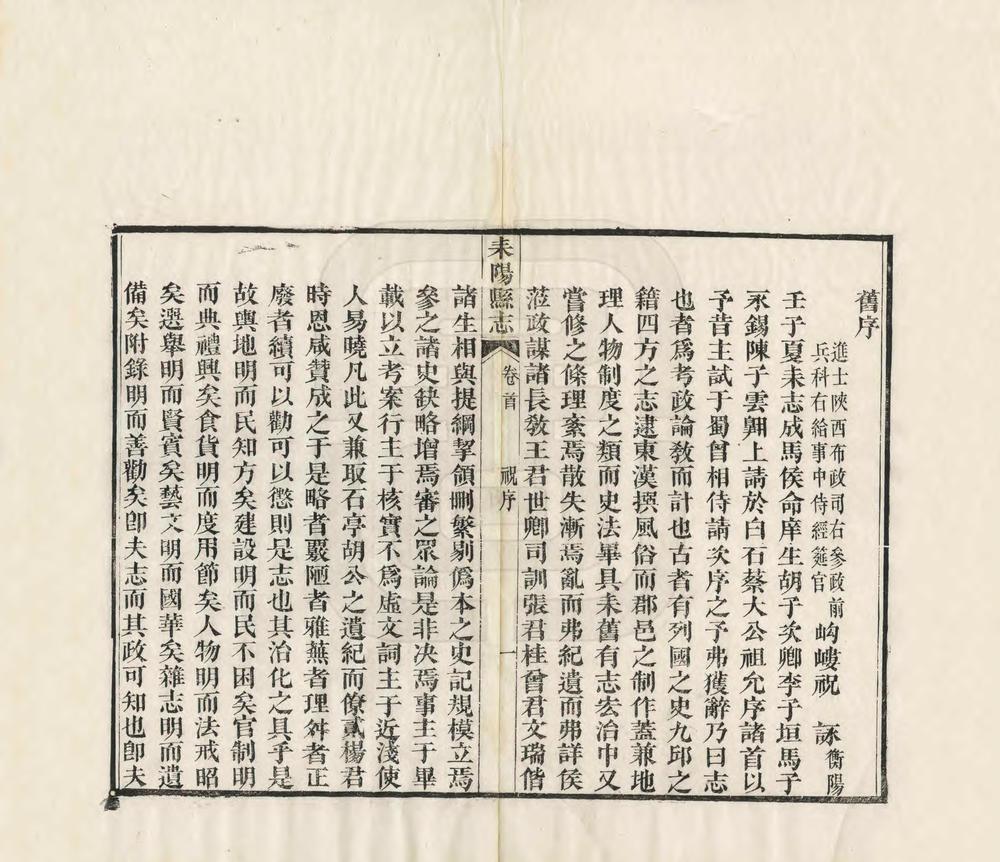 舊序
進士陝西布政司右參政前
兵科右給事中侍經筵官
岣嶁祝　詠衡陽
壬子夏耒志成馬侯命庠生胡子次卿李子垣馬子
永錫陳子雲翺上請於白石蔡大公祖允序諸首以
予昔主試于蜀曾相侍請次序之予弗獲辭乃曰志
也者爲考政論敎而計也古者有列國之史九邱之
籍四方之志逮東漢撰風俗而郡邑之制作蓋兼地
理人物制度之類而史法畢具耒舊有志宏治中又
嘗修之條理紊焉散失漸焉亂而弗紀遺而弗詳侯
蒞政謀諸長敎王君世卿司訓張君桂曾君文瑞偕
耒陽縣志　卷首　祝序　一
諸生相與提綱挈領刪繁剔僞本之史記規模立焉
參之諸史缺略增焉審之眾論是非决焉事主于畢
載以立考案行主于核實不爲虛文詞主于近淺使
人易曉凡此又兼取石亭胡公之遺紀而僚貳楊君
時恩咸贊成之于是略者覈陋者雅蕪者理舛者正
廢者續可以勸可以懲則是志也其治化之具乎是
故輿地明而民知方矣建設明而民不困矣官制明
而典禮興矣食貨明而度用節矣人物明而法戒昭
矣選舉明而賢賓矣藝文明而國華矣雜志明而遺
備矣附錄明而善勸矣卽夫志而其政可知也卽夫